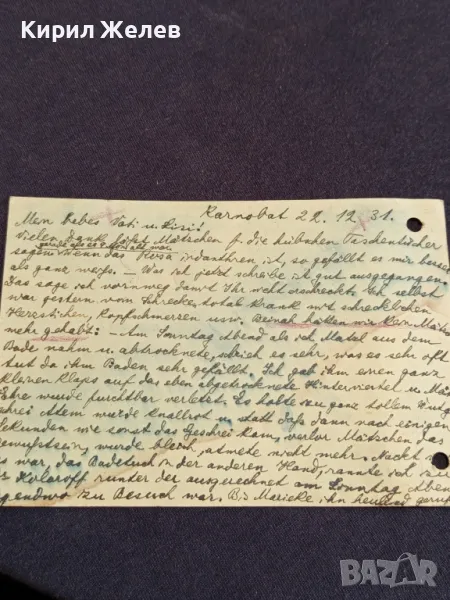 Кирил Желев
Karnobat 22. 12. 31.
Mein liebes Vati u. Lisi!
Vielen Dank läßt Mätschen f. die hübschen Taschentücher
sagen. Wenn das Rosa indanthren ist, so gefällt es mir besser
als ganz weiß. – Was ich jetzt schreibe ist gut ausgegangen
das sage ich vornweg damit Ihr nicht erschreckt. Ich selbst
war gestern vom Schrecke total krank mit schrecklichen
Herzstichen, Kopfschmerzen usw. Beinah hätten wir kein Mätschen
mehr gehabt! – Am Sonntag Abend als ich Matsl aus dem
Bade nahm u. abtrocknete, schrie es sehr, was es sehr oft
tut da ihm Baden sehr gefällt. Ich gab ihm einen ganz
kleinen Klaps auf das eben abgetrocknete Hinterviertel u.
Ehre wurde furchtbar verletzt. Es holte zu ganz tollem
Atem wurde knallrot u. statt daß dann nach einigen
Sekunden wie sonst das Geschrei kam, verlor Mätschen das
Bewußtsein, wurde bleich, atmete nicht mehr. Nackt
es war das Badetuch in der anderen Hand, rannte ich zu
Kolaroff runter der ausgerechnet am Sonntag Abend
irgendwo zu Besuch war. Bis Maricke ihn heulend
BAZAR.bg